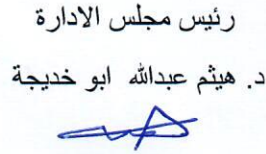 رئيس مجلس الادارة
د. هيثم عبدالله ابو خديجة